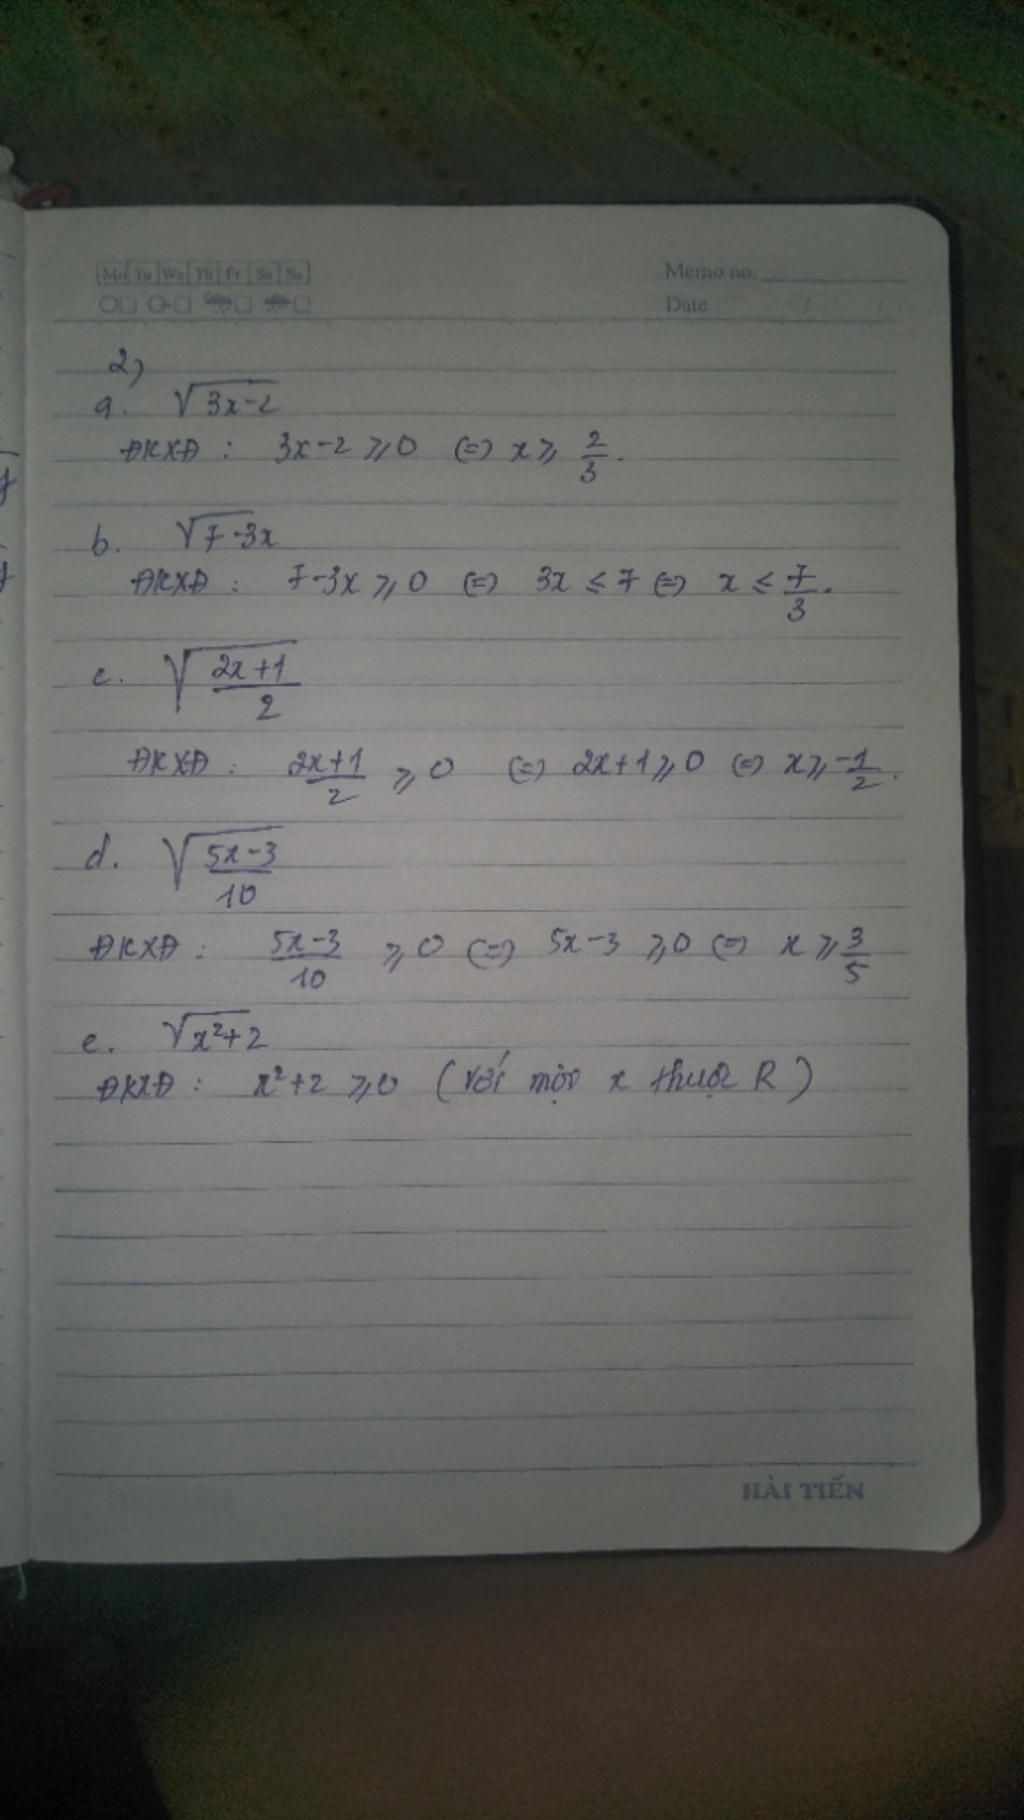 Mo Tu We Th Fr Sa Su
Memo no.
Date / /
2)
a. √3x-2
ĐKXĐ : 3x-2 ≥ 0 (=) x ≥ 2/3.
b. √7-3x
ĐKXĐ : 7-3x ≥ 0 (=) 3x ≤ 7 (=) x ≤ 7/3.
c. √(2x+1)/2
ĐKXĐ : (2x+1)/2 ≥ 0 (=) 2x+1 ≥ 0 (=) x ≥ -1/2.
d. √(5x-3)/10
ĐKXĐ : (5x-3)/10 ≥ 0 (=) 5x-3 ≥ 0 (=) x ≥ 3/5
e. √x²+2
ĐKXĐ : x²+2 ≥ 0 (với mọi x thuộc R)
HẢI TIẾN